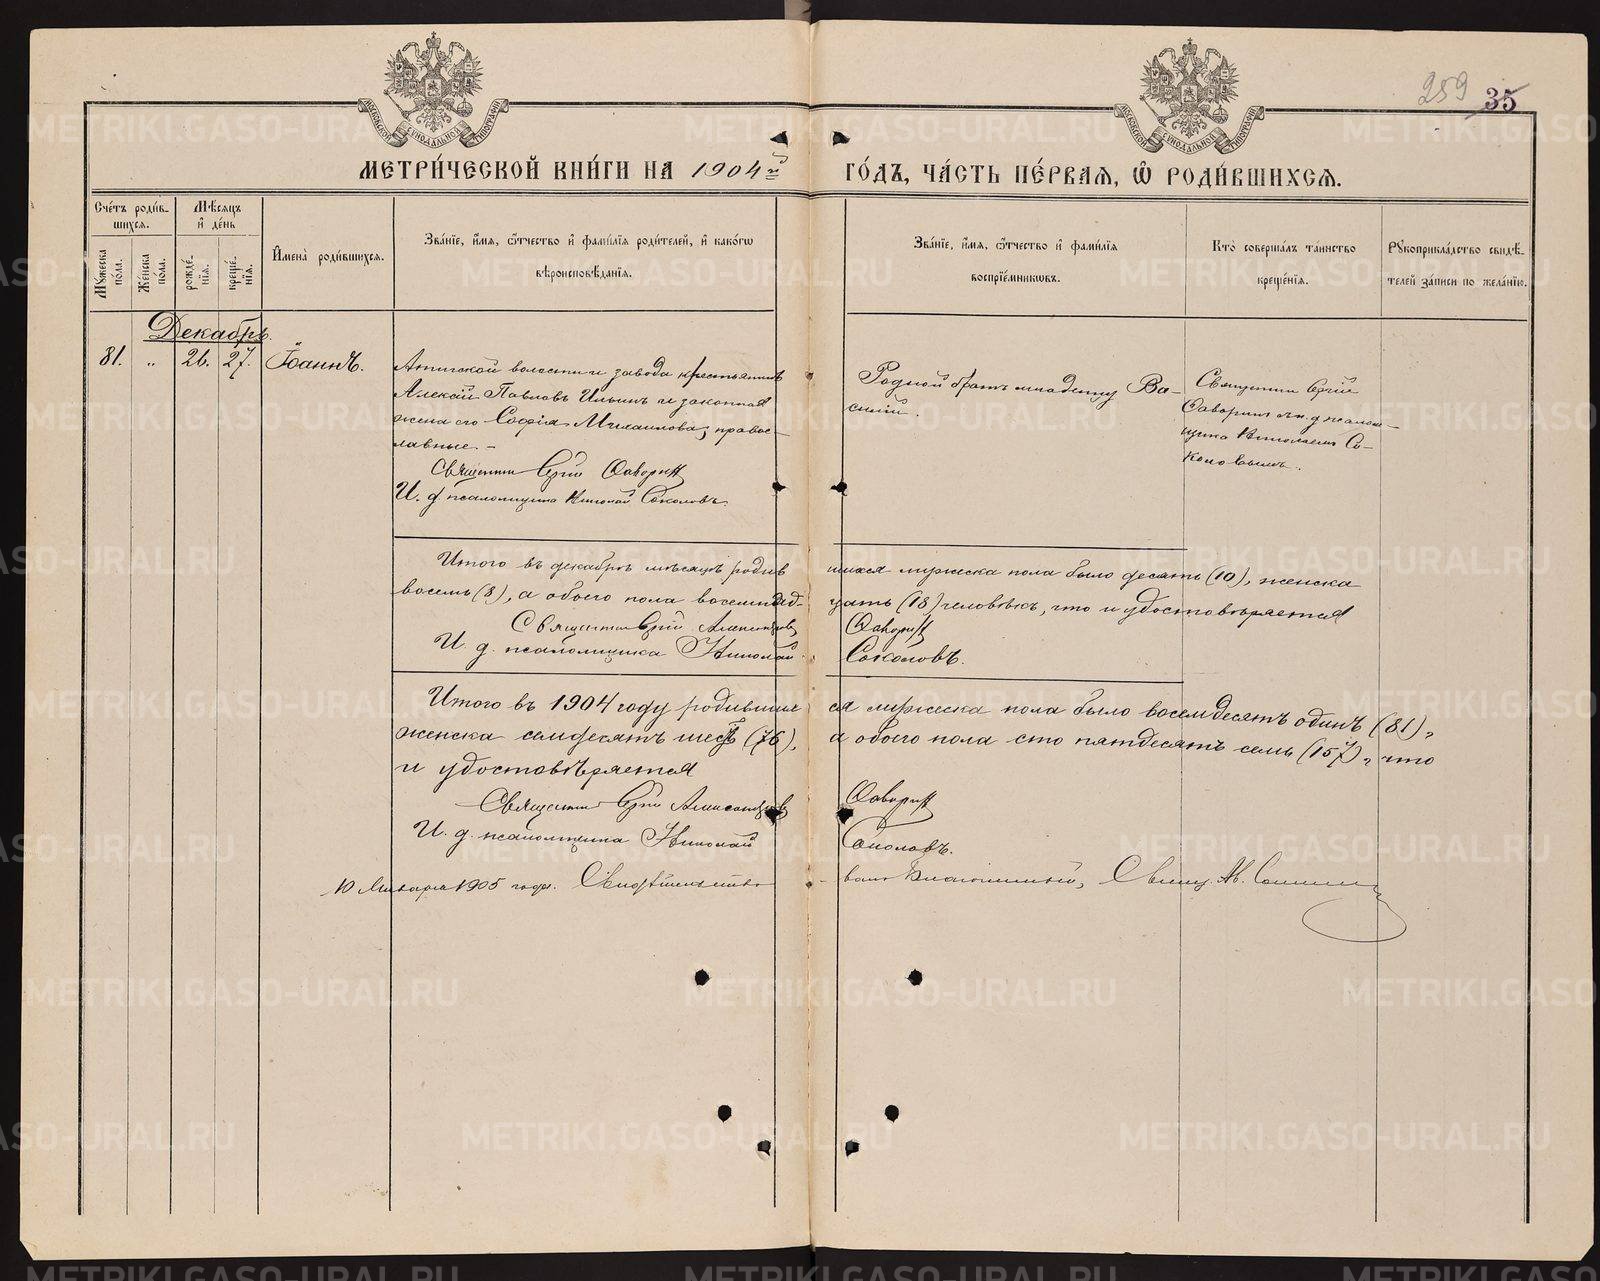 259 35
МЕТРИ́ЧЕСКОЙ КНИ́ГИ НА 1904й ГО́ДЪ, ЧА́СТЬ ПЕ́РВАЯ, Ѽ РОДИ́ВШИХСЯ.
Сче́тъ роди́вшихся.
Мѣ́сяцъ и де́нь
Мꙋ́жеска по́ла.
Же́нска по́ла.
рожде́нїя.
креще́нїя.
Имена̀ роди́вшихся.
Зва́нїе, и́мя, ѻ́тчество и фами́лїя роди́телей, и како́гѡ
вѣроисповѣ́данїя.
Зва́нїе, и́мя, ѻ́тчество и фами́лїя
воспрїе́мникѡвъ.
Кто̀ соверша́лъ та́инство
креще́нїя.
Рꙋкоприкла́дство свидѣ́-
телей за́писи по жела́нїю.
Декабрь.
81. " 26. 27. Іоаннъ.
Атигской волости и завода крестьянинъ
Алексѣй Павловъ Ильинъ и законная
жена его Софія Михаилова, правос-
лавные. –
Священникъ Сергій Саворинъ
И. д. псаломщика Николай Соколовъ.
Родной братъ младенцу Ва-
силій.
Священникъ Сергій
Саворинъ съ и. д. псалом-
щика Николаемъ Со-
коловымъ.
Итого въ декабрѣ мѣсяцѣ родив шихся мужеска пола было десять (10), женска
восемь (8), а обоего пола восемнад- цать (18) человѣкъ, что и удостовѣряется
Священникъ Сергій Александровъ Саворинъ
И. д. псаломщика Николай Соколовъ.
Итого въ 1904 году родивших ся мужеска пола было восемьдесятъ одинъ (81),
женска семьдесятъ шесть (76), а обоего пола сто пятьдесятъ семь (157), что
и удостовѣряется
Священникъ Сергій Александровъ Саворинъ
И. д. псаломщика Николай Соколовъ.
10 Января 1905 года. Свидѣтельство- валъ Благочинный, Свящ. Ал.